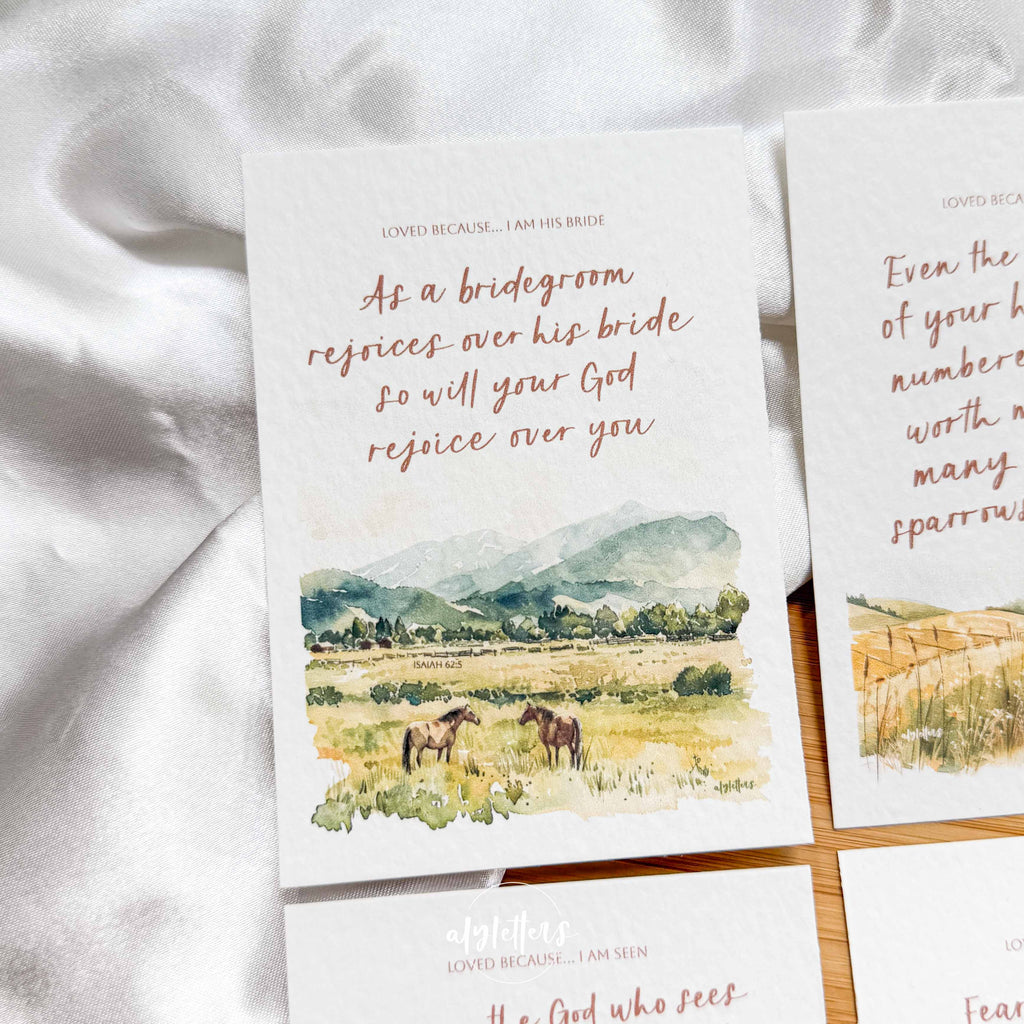 LOVED BECAUSE... I AM HIS BRIDE
As a bridegroom
rejoices over his bride
so will your God
rejoice over you
ISAIAH 62:5
alyletters
Even the
of your
numbere
worth
many
sparrows
alyletters
alyletters
LOVED BECAUSE... I AM SEEN
the God who sees
Fear